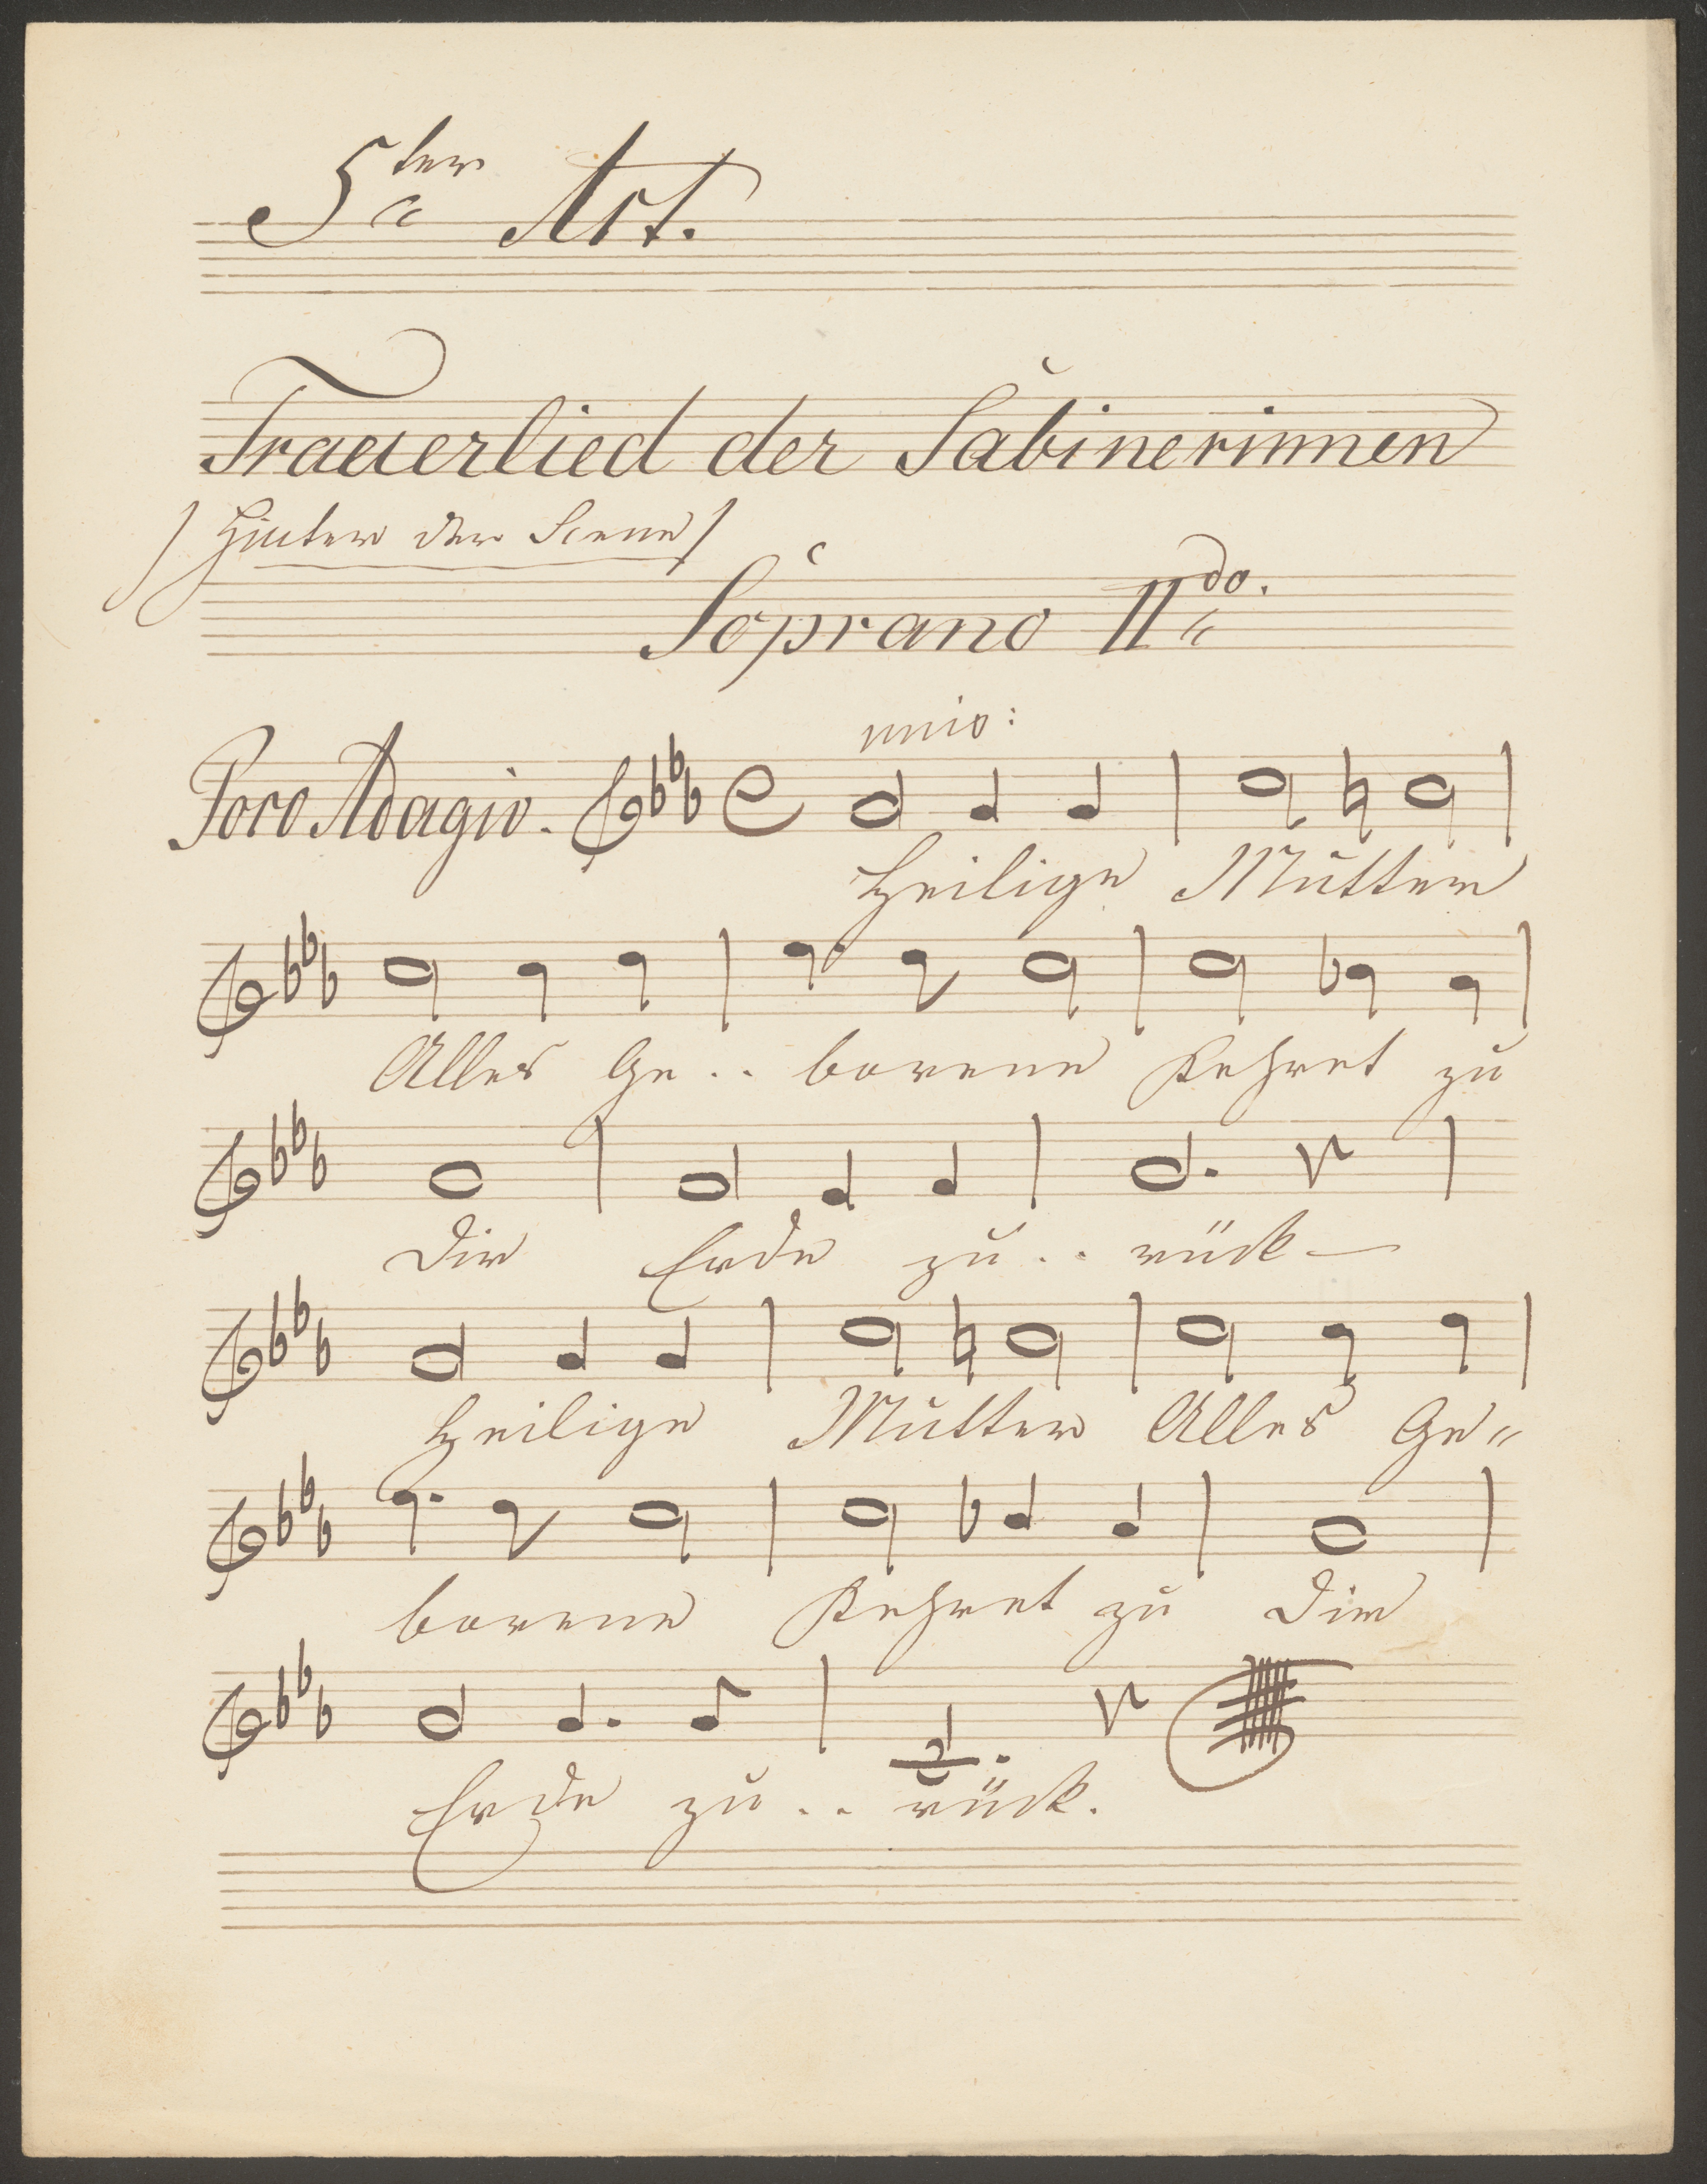 5ter Act.
Trauerlied der Sabinerinnen
/ Hinter der Scene /
Soprano IIdo.
unis:
Poco Adagio.
Heilige Mutter
Alles Ge .. borene kehret zu
Dir Erde zu .. rück
Heilige Mutter Alles Ge"
borene kehret zu Dir
Erde zu .. rück.